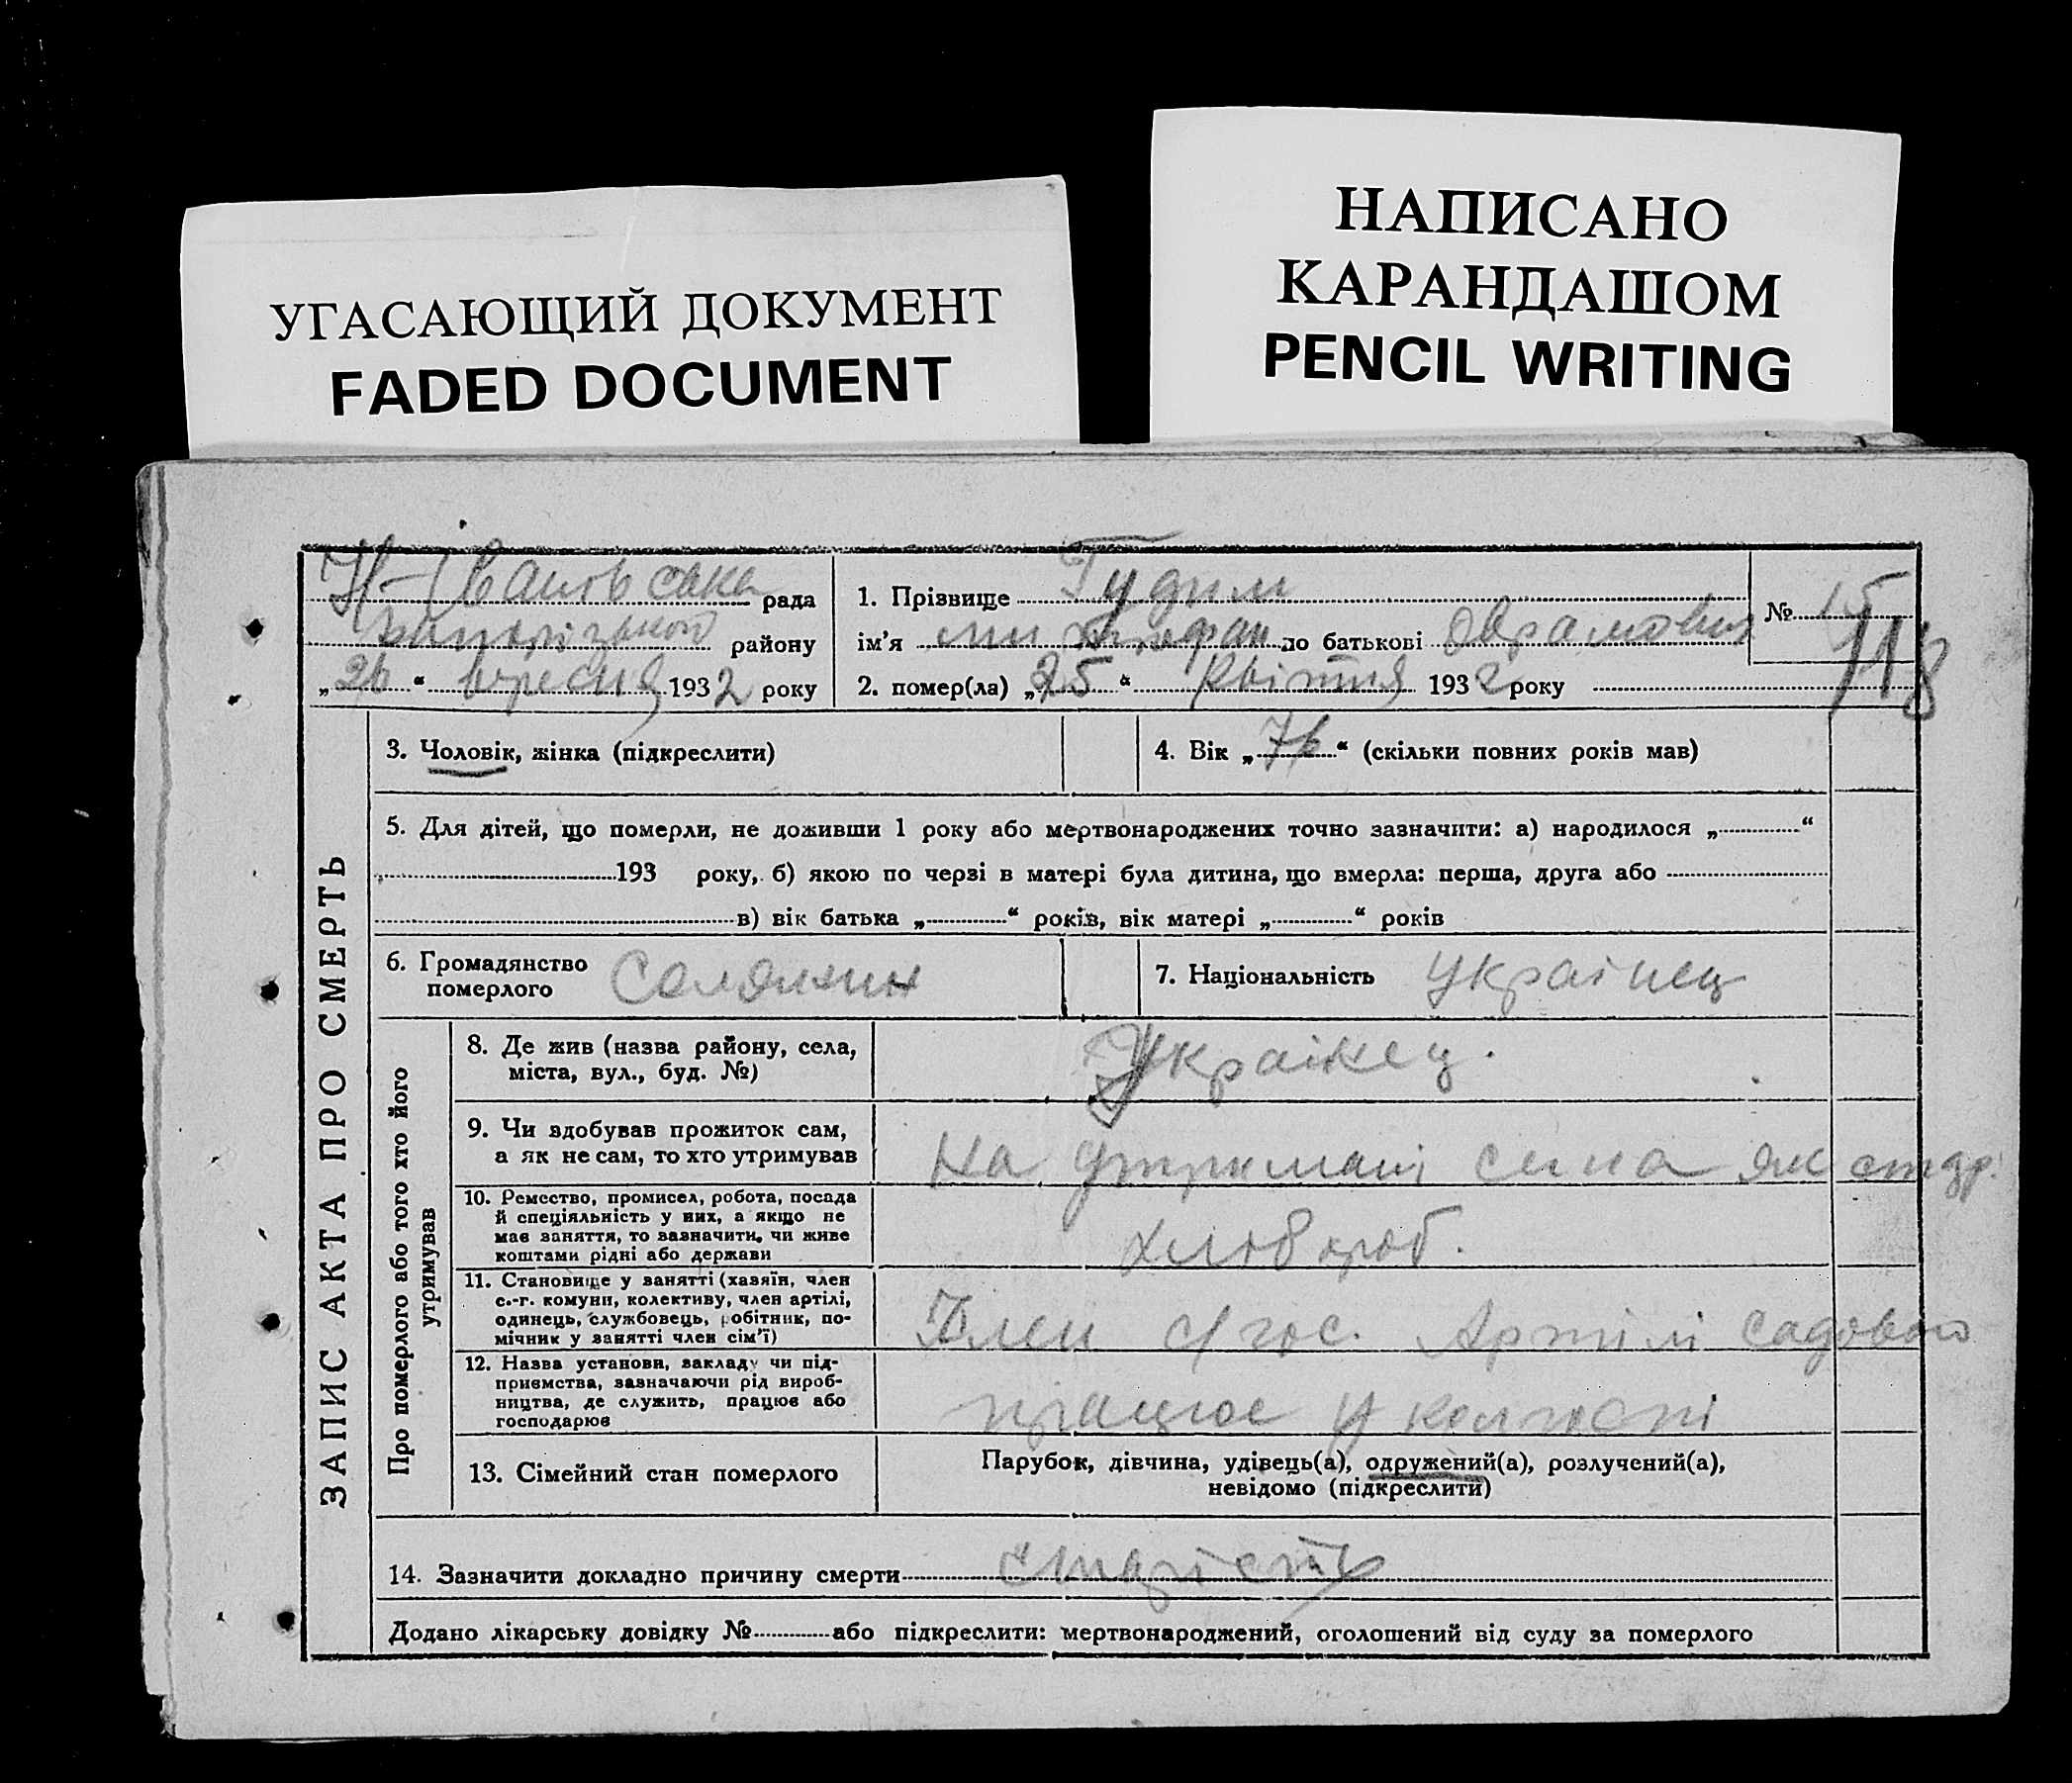 УГАСАЮЩИЙ ДОКУМЕНТ
FADED DOCUMENT
НАПИСАНО
КАРАНДАШОМ
PENCIL WRITING
рада
району
„26“ вересня 1932 року
1. Прізвище Гудим
ім’я по батькові
2. помер(ла) „25“ 1932 року
№ 15
118
ЗАПИС АКТА ПРО СМЕРТЬ
3. Чоловік, жінка (підкреслити)
4. Вік „76“ (скільки повних років мав)
5. Для дітей, що померли, не доживши 1 року або мертвонароджених точно зазначити: а) народилося „ “
193 року, б) якою по черзі в матері була дитина, що вмерла: перша, друга або
в) вік батька „ “ років, вік матері „ “ років
6. Громадянство
померлого
7. Національність Українець
Про померлого або того хто його
утримував
8. Де жив (назва району, села,
міста, вул., буд. №)
Українец.
9. Чи здобував прожиток сам,
а як не сам, то хто утримував
На утримані сина як
10. Ремество, промисел, робота, посада
й спеціяльність у них, а якщо не
має заняття, то зазначити, чи живе
коштами рідні або держави
хлібороб.
11. Становище у занятті (хазяїн, член
с.-г. комуни, колективу, член артілі,
одинець, службовець, робітник, по-
мічник у занятті член сім’ї)
Член с/гос. Артілі
12. Назва установи, закладу чи під-
приємства, зазначаючи рід вироб-
ництва, де служить, працює або
господарює
працює у колгоспі
13. Сімейний стан померлого
Парубок, дівчина, удівець(а), одружений(а), розлучений(а),
невідомо (підкреслити)
14. Зазначити докладно причину смерти старість
Додано лікарську довідку № або підкреслити: мертвонароджений, оголошений від суду за померлого